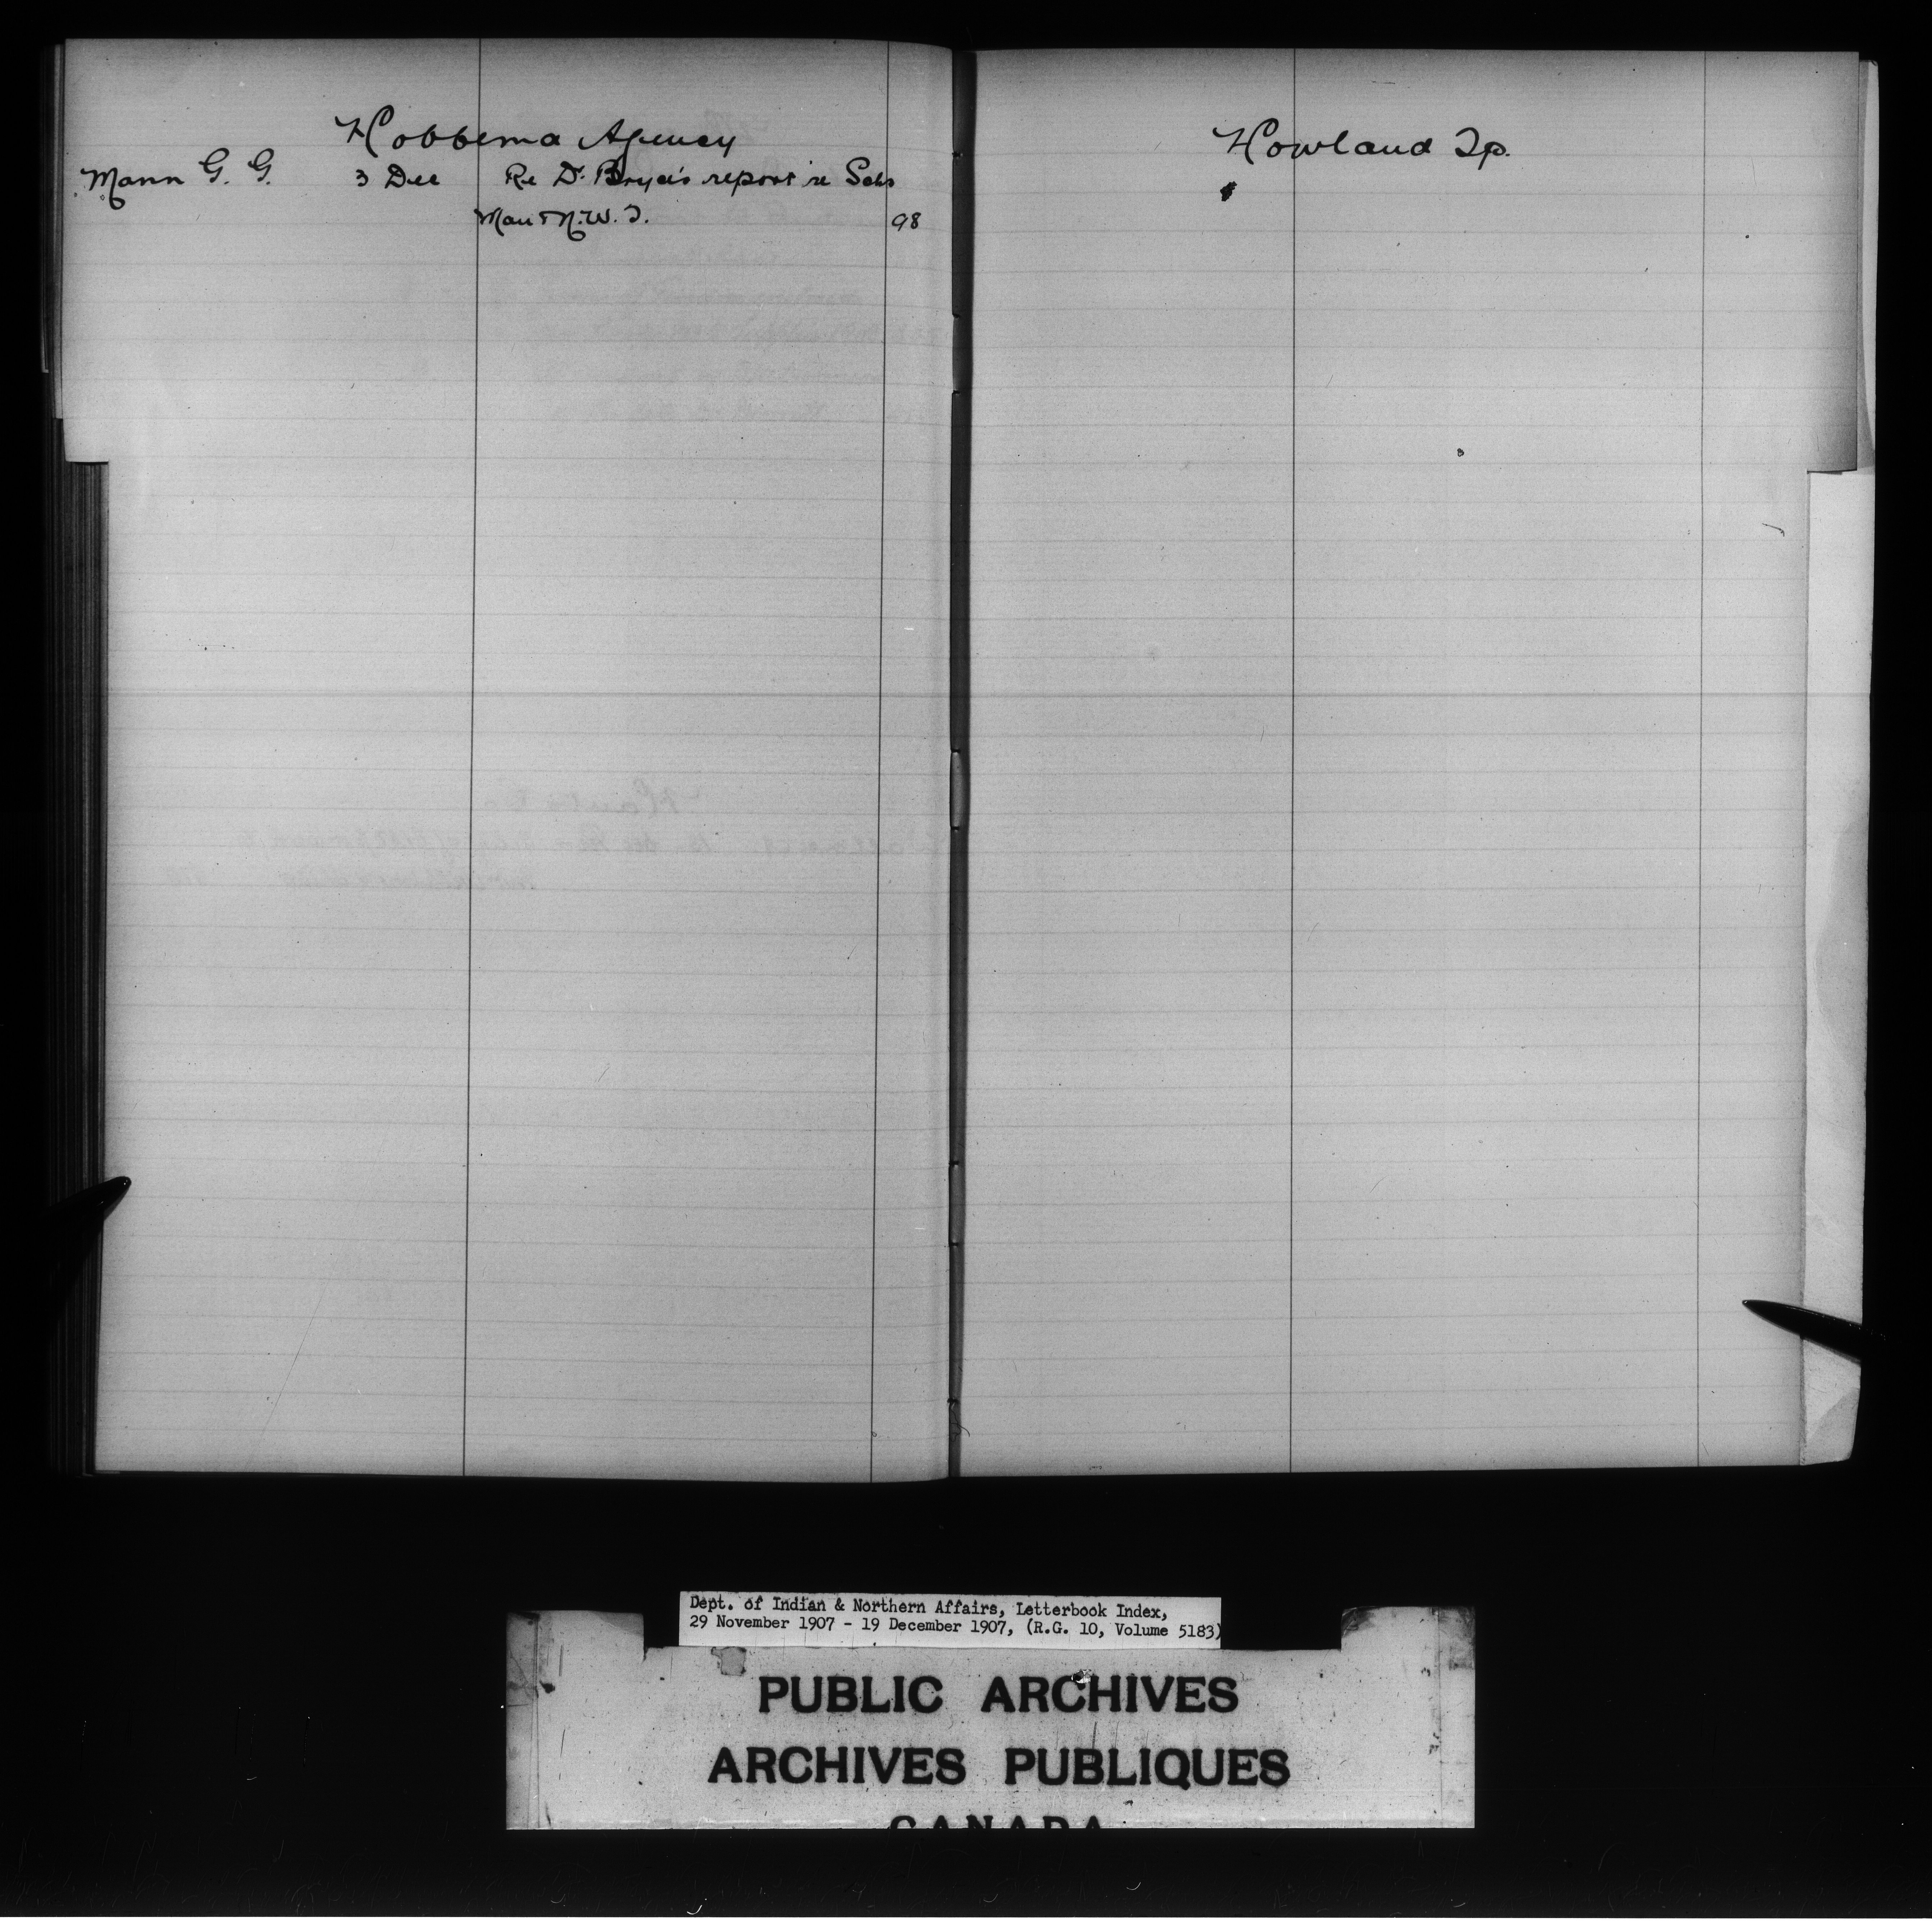 Hobbema Agency
Mann G. G. 3 Dec Re Dr. Bryce's report re Schs
Man & N.W.T. 98
Howland Tp.
Dept. of Indian & Northern Affairs, Letterbook Index,
29 November 1907 - 19 December 1907, (R.G. 10, Volume 5183)
PUBLIC ARCHIVES
ARCHIVES PUBLIQUES
CANADA